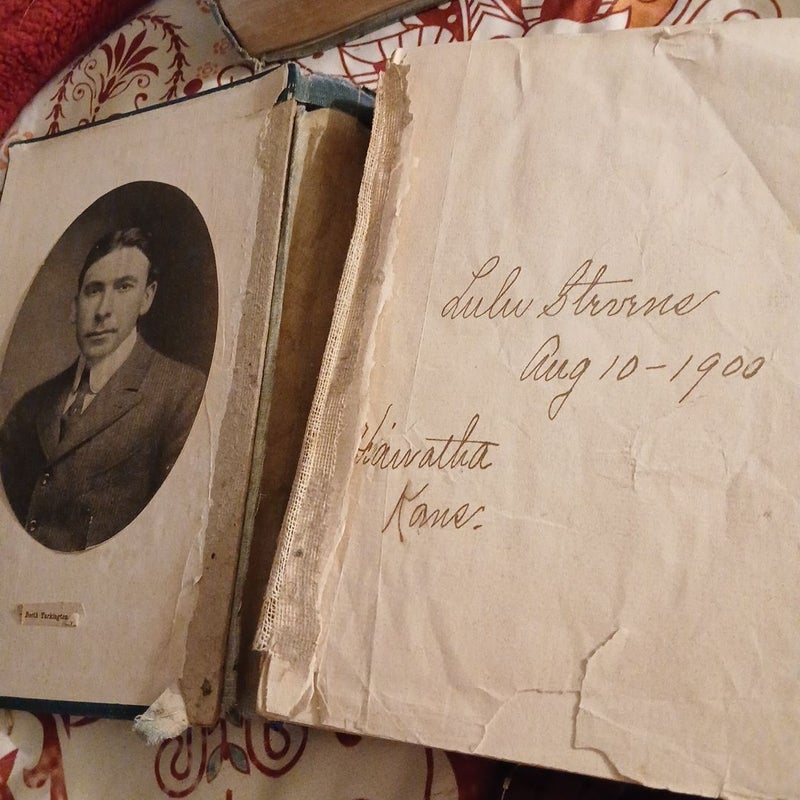 Booth Tarkington
Lulu Stevens
Aug 10-1900
Hiawatha
Kans.